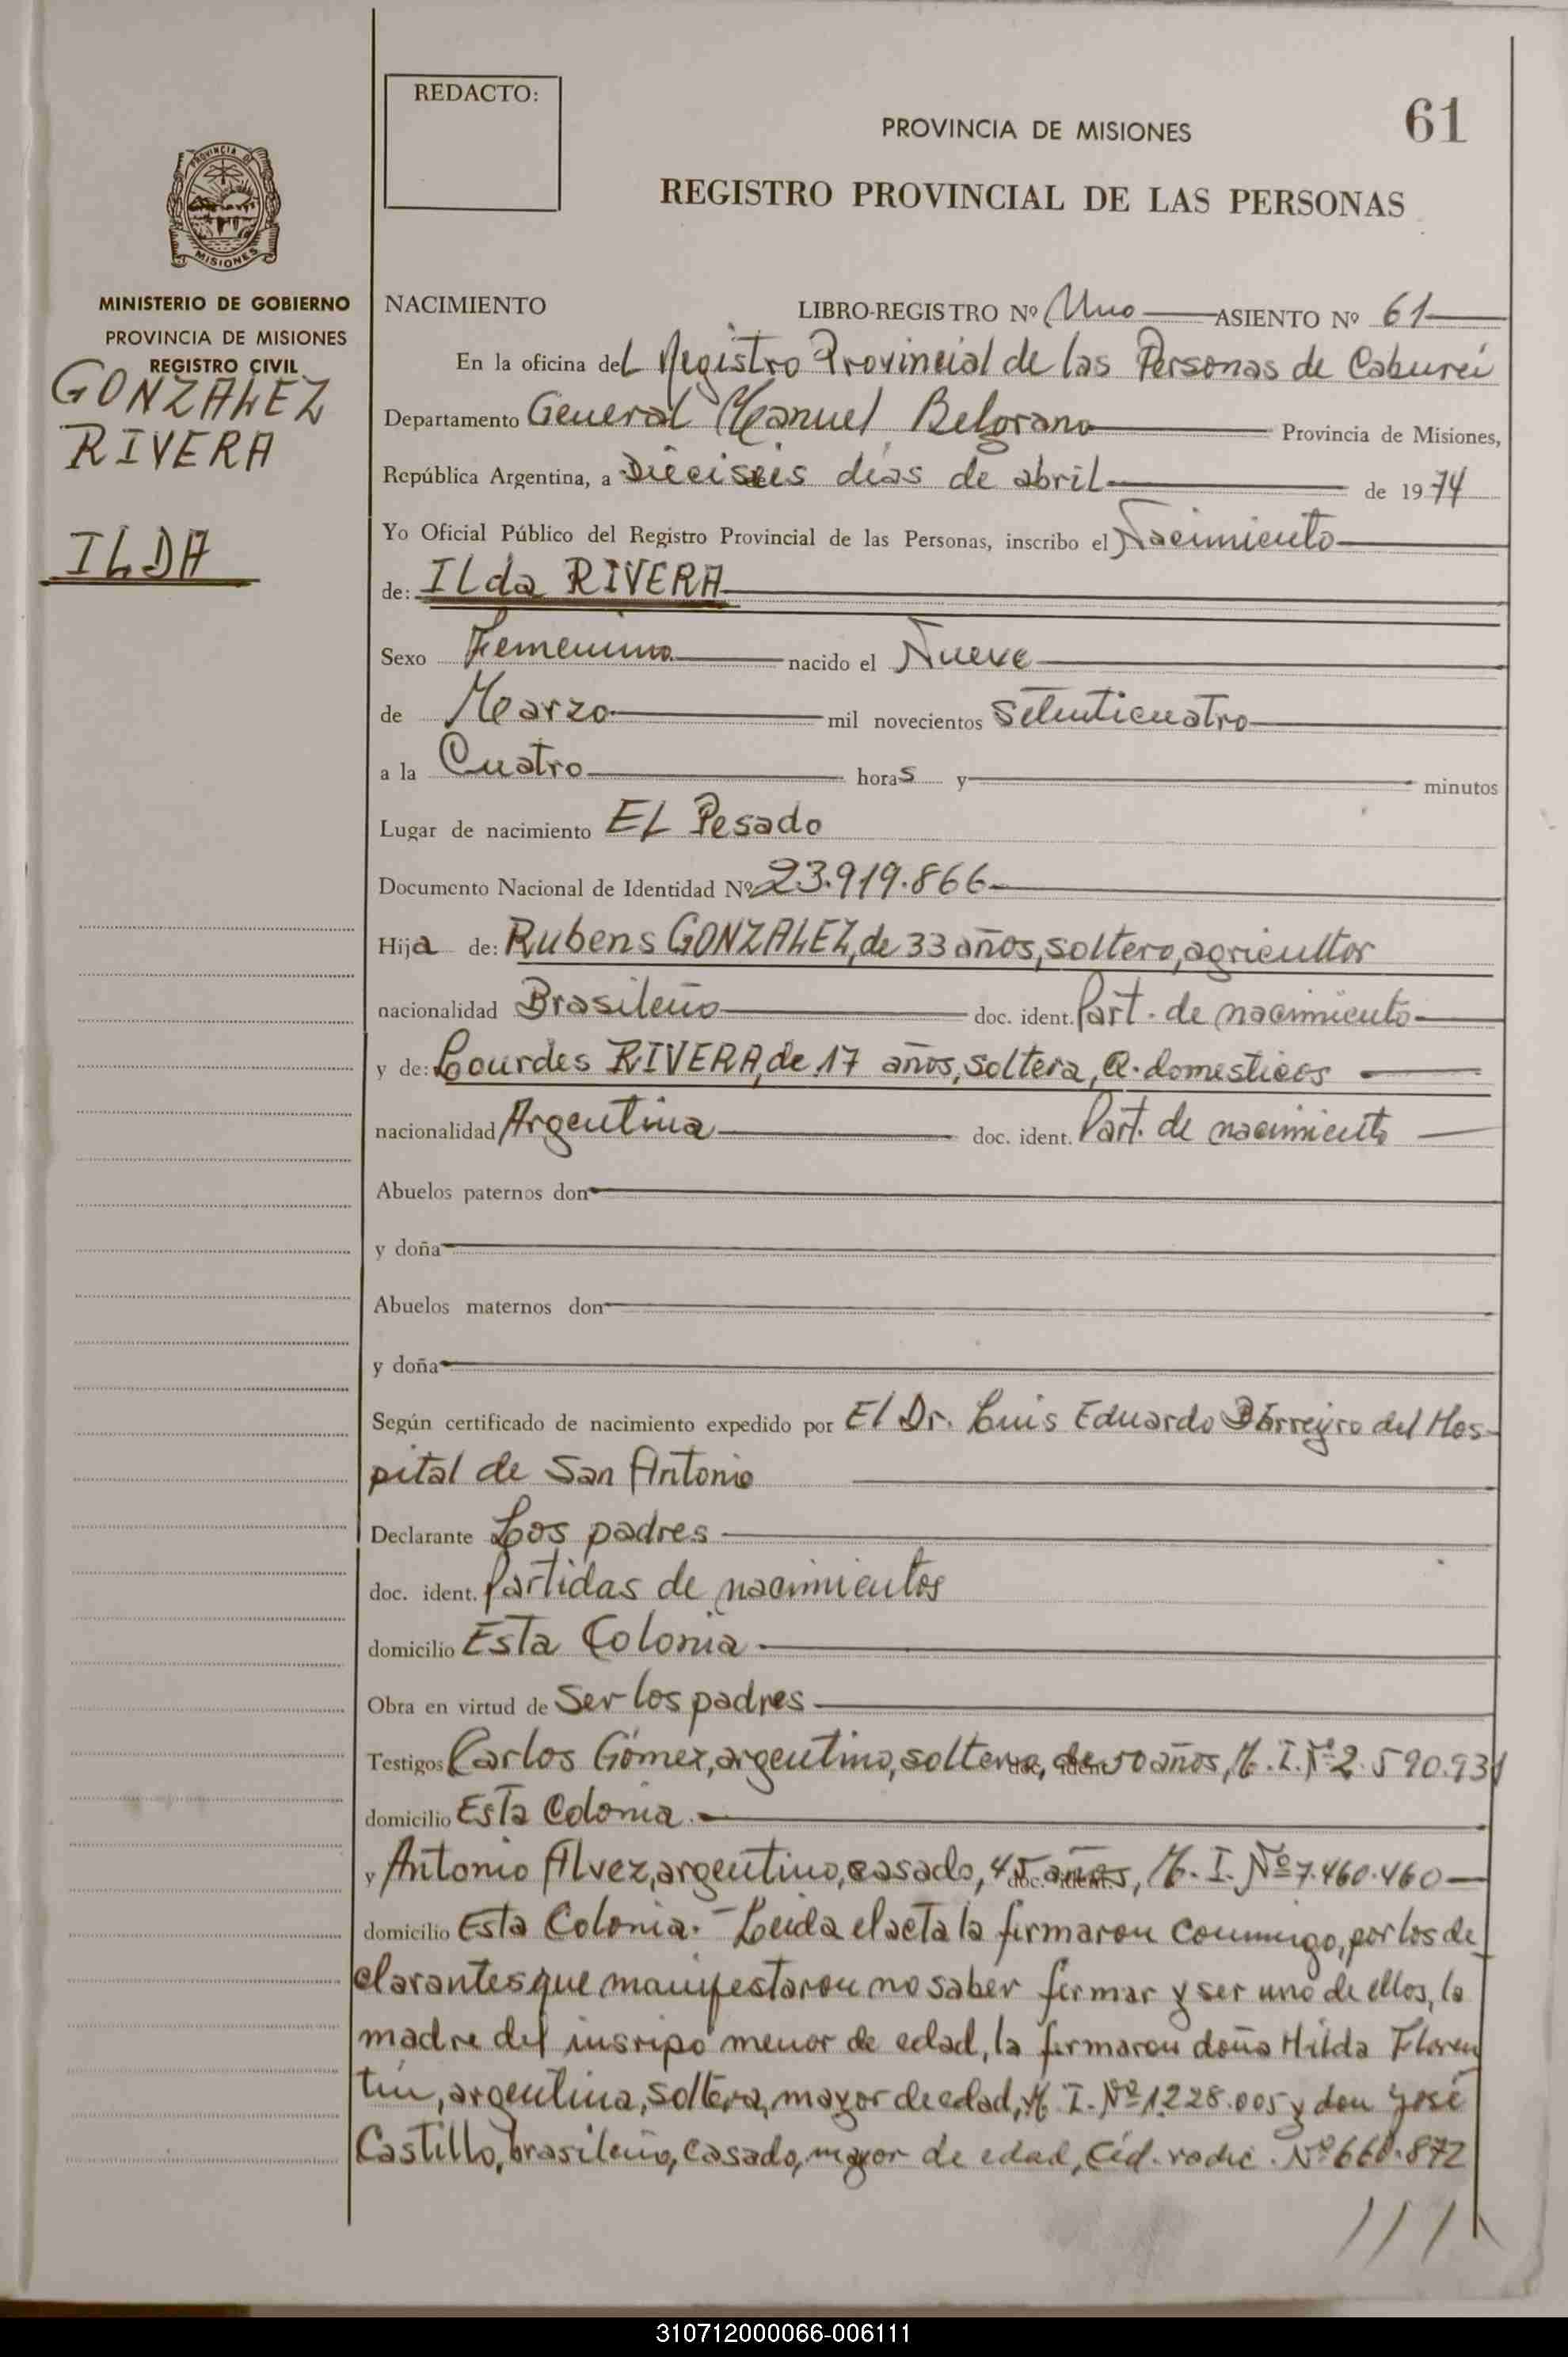 REDACTO:
PROVINCIA DE MISIONES
61
REGISTRO PROVINCIAL DE LAS PERSONAS
PROVINCIA DE
MISIONES
MINISTERIO DE GOBIERNO
PROVINCIA DE MISIONES
REGISTRO CIVIL
GONZALEZ
RIVERA
ILDA
NACIMIENTO LIBRO-REGISTRO Nº Uno ASIENTO Nº 61
En la oficina del Registro Provincial de las Personas de Cabureí
Departamento General Manuel Belgrano Provincia de Misiones,
República Argentina, a Dieciseis días de abril de 1974
Yo Oficial Público del Registro Provincial de las Personas, inscribo el Nacimiento
de: ILda RIVERA
Sexo Femenino nacido el Nueve
de Marzo mil novecientos setenticuatro
a la Cuatro horas y minutos
Lugar de nacimiento EL Pesado
Documento Nacional de Identidad Nº 23.919.866
Hija de: Rubens GONZALEZ, de 33 años, soltero, agricultor
nacionalidad Brasileño doc. ident. Part. de nacimiento
y de: Lourdes RIVERA, de 17 años, soltera, Q. domesticos
nacionalidad Argentina doc. ident. Part. de nacimiento
Abuelos paternos don
y doña
Abuelos maternos don
y doña
Según certificado de nacimiento expedido por El Dr. Luis Eduardo del Hos-
pital de San Antonio
Declarante Los padres
doc. ident. Partidas de nacimientos
domicilio Esta Colonia
Obra en virtud de Ser los padres
Testigos Carlos Gómez, argentino, soltero, de 50 años, M. I. Nº 2.590.931
domicilio Esta Colonia.
y Antonio Alvez, argentino, casado, 45 años, M. I. Nº 7.460.460
domicilio Esta Colonia.- Leida el acta la firmaron conmigo, por los de
clarantes que manifestaron no saber firmar y ser uno de ellos, la
madre del insripo menor de edad, la firmaron doña Hilda Floren
tin, argentina, soltera, mayor de edad, M. I. Nº 1.228.005 y don José
Castillo, brasileño, casado, mayor de edad, Céd. radic. Nº 660.872
///
310712000066-006111